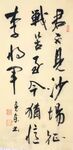 君不見沙場征
戰苦至今猶憶
李將軍